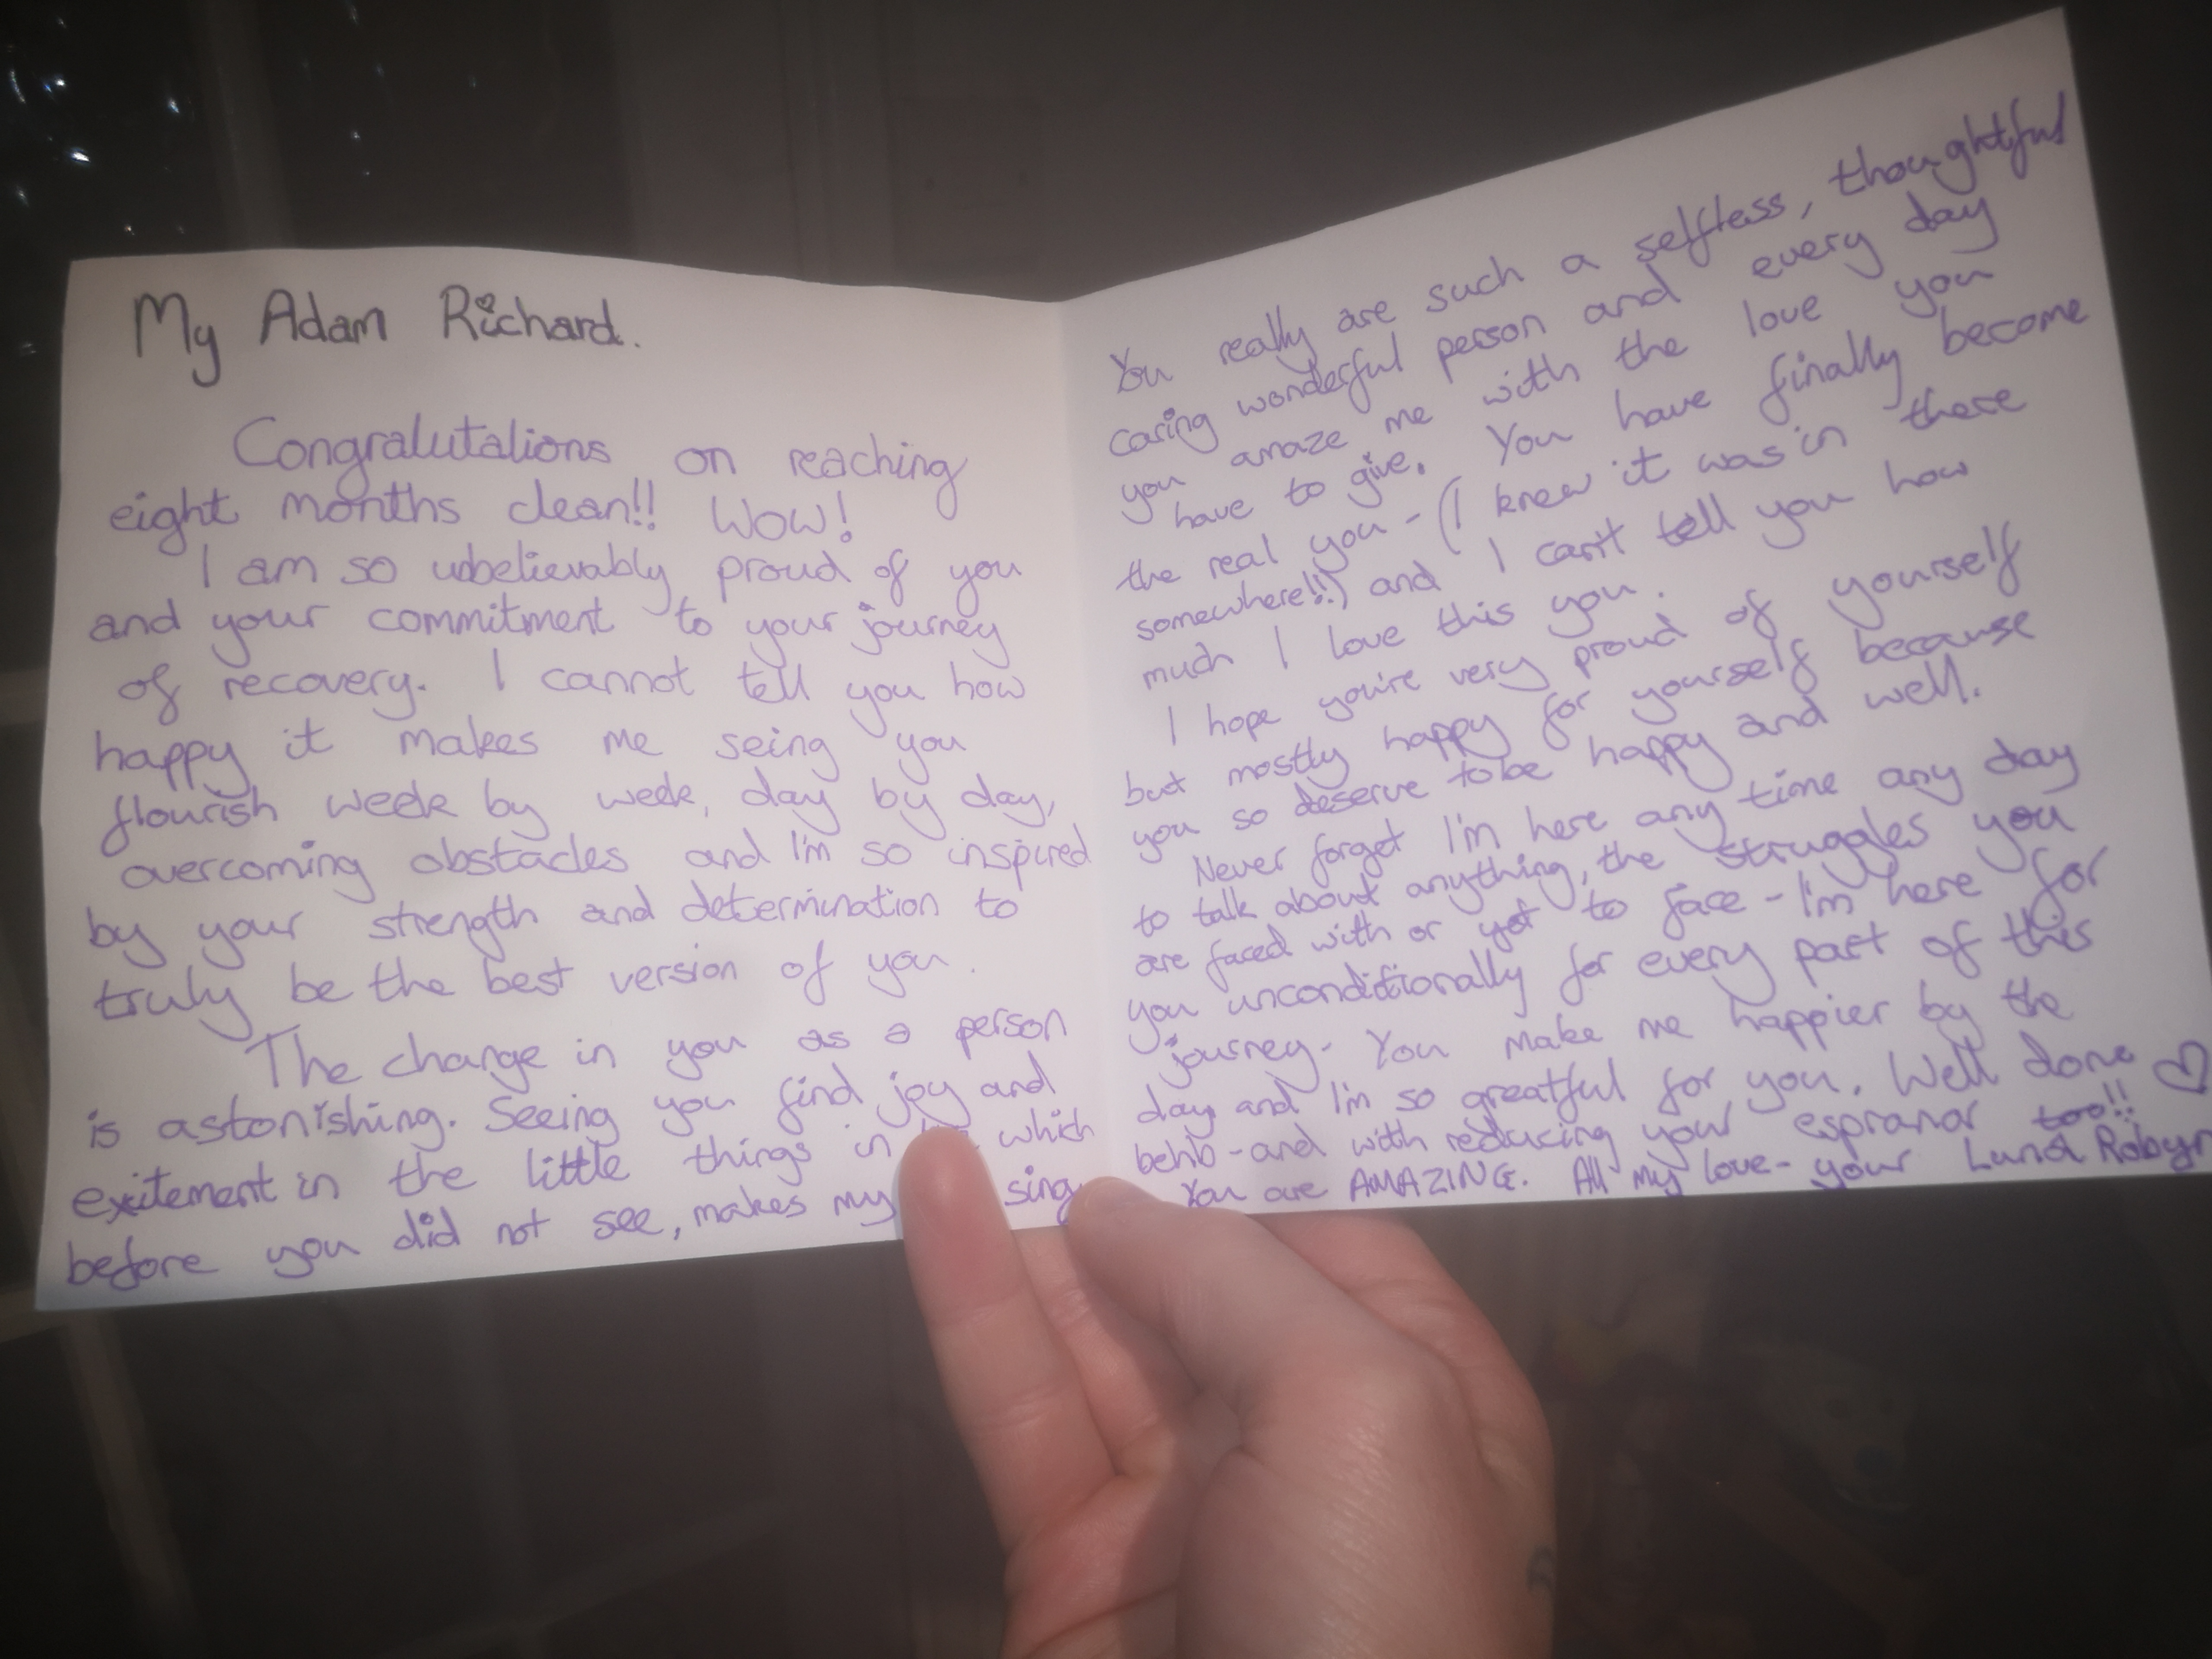 My Adam Richard.
Congralutalions on reaching
eight months clean!! Wow!
I am so unbelievably proud of you
and your commitment to your journey
of recovery. I cannot tell you how
happy it makes me seing you
flourish week by week, day by day,
overcoming obstacles and I'm so inspired
by your strength and determination to
truly be the best version of you.
The change in you as a person
is astonishing. Seeing you find joy and
exitement in the little things in which
before you did not see, makes my sing
You really are such a selfless, thoughtful
caring wonderful person and every day
you amaze me with the love you
have to give. You have finally become
the real you - (I knew it was in there
somewhere!!) and I can't tell you how
much I love this you.
I hope you're very proud of yourself
but mostly happy for yourself because
you so deserve to be happy and well.
Never forget I'm here any time any day
to talk about anything, the struggles you
are faced with or yet to face - I'm here for
you unconditionally for every part of this
journey. You make me happier by the
day and I'm so greatful for you. Well done
behb - and with reducing your espranor too!!
You are AMAZING. All my love - your Luna Robyn